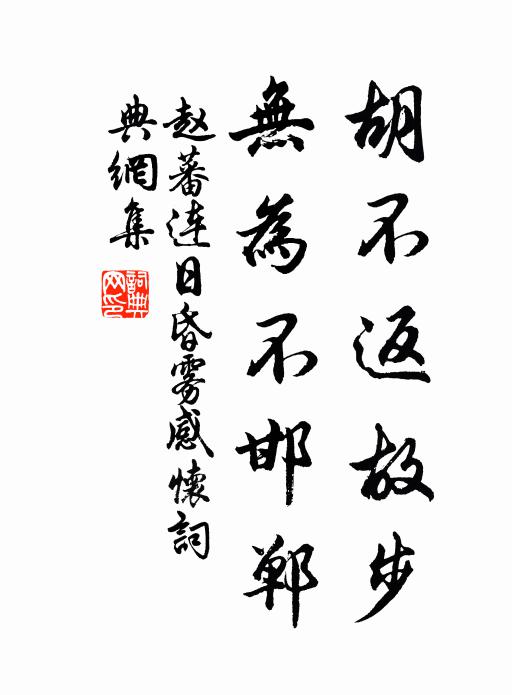 胡不返故步
無為不邯鄲
赵蕃连日昏雾感懷詞
典網集
詞典網印